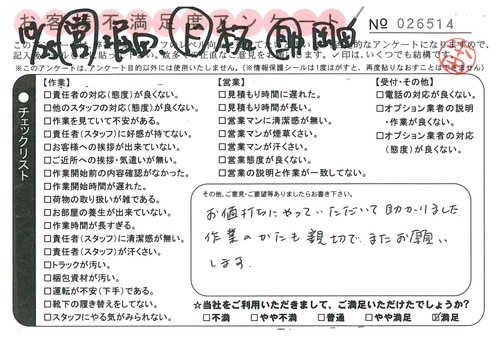 お客様不満足度アンケート
№ 026514
※このアンケートは、アンケート目的以外には使用いたしません。(※情報保護シールは1度がすと、再度貼りなおすことはできません)
チェックリスト
【作業】
□責任者の対応(態度)が良くない。
□他のスタッフの対応(態度)が良くない。
□作業を見ていて不安がある。
□責任者(スタッフ)に好感が持てない。
□お客様への挨拶が出来ていない。
□ご近所への挨拶・気遣いが無い。
□作業開始前の内容確認がなかった。
□作業開始時間が遅れた。
□荷物の取り扱いが雑である。
□お部屋の養生が出来ていない。
□作業時間が長すぎる。
□責任者(スタッフ)に清潔感が無い。
□責任者(スタッフ)が汗くさい。
□トラックが汚い。
□梱包資材が汚い。
□運転が不安(下手)である。
□靴下の履き替えをしてない。
□スタッフにやる気がみられない。
【営業】
□見積もり時間に遅れた。
□見積もり時間が長い。
□営業マンに清潔感が無い。
□営業マンが煙草くさい。
□営業マンが汗くさい。
□営業態度が良くない。
□営業の説明と作業が一致してない。
【受付・その他】
□電話の対応が良くない。
□オプション業者の説明・作業が良くない。
□オプション業者の対応(態度)が良くない。
その他、ご意見・ご要望等ありましたらお書き下さい。
お値打ちにやっていただいて助かりました
作業のかたも親切で、またお願い
します。
☆当社をご利用いただきまして、ご満足いただけたでしょうか?
□不満 □やや不満 □普通 □やや満足 ☑満足